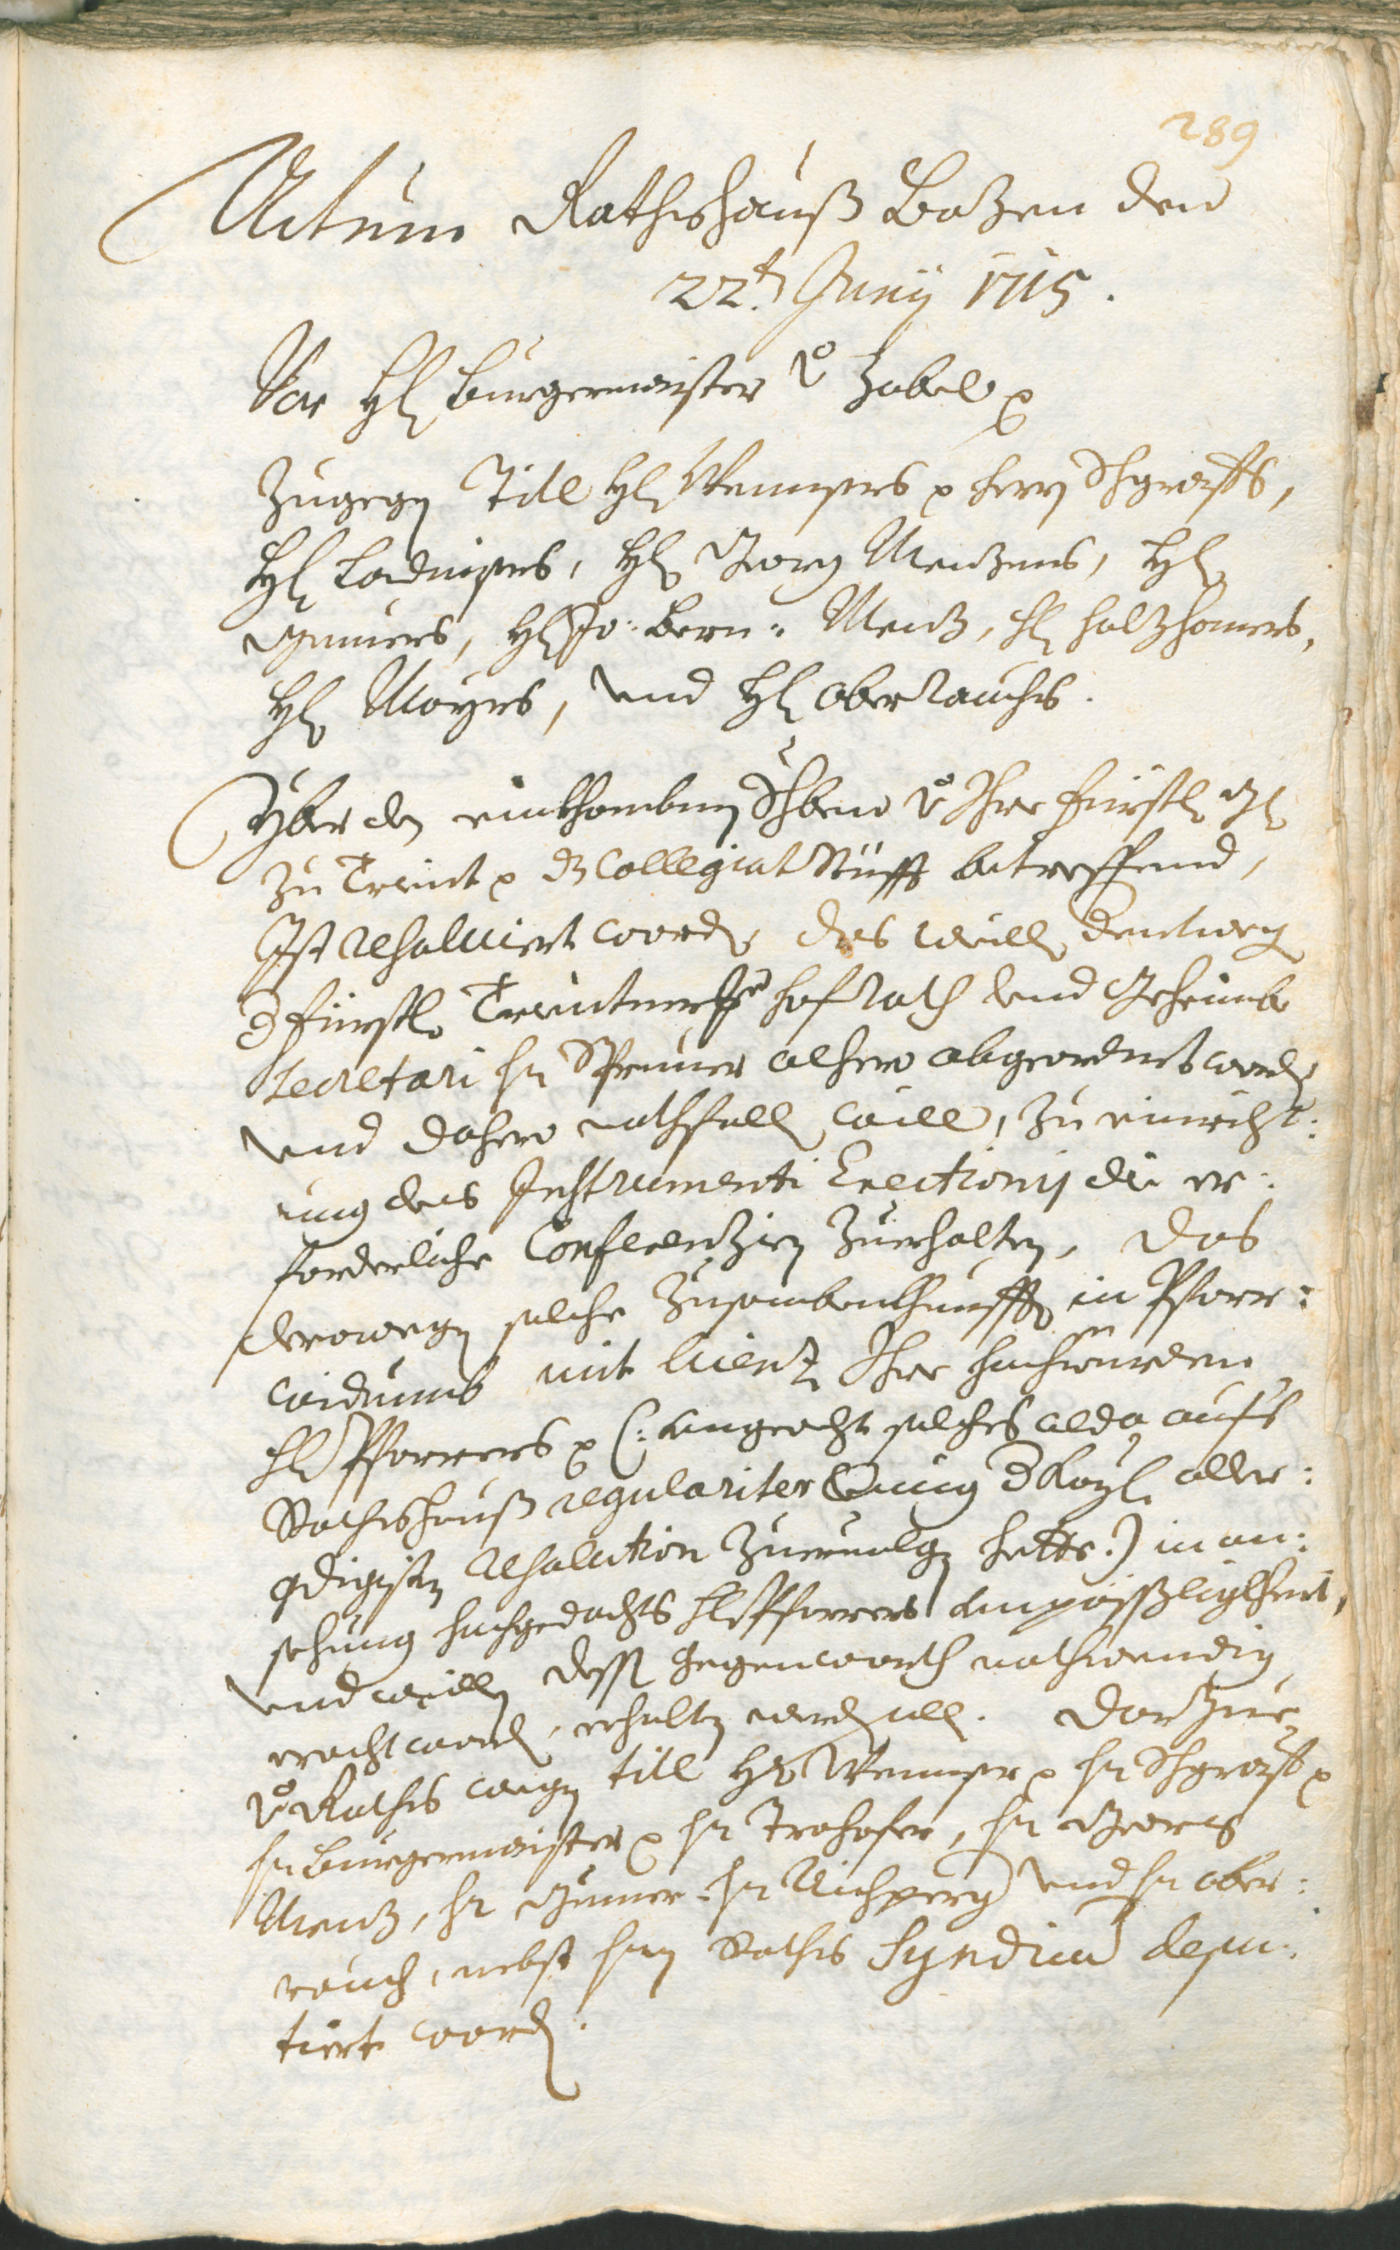 289
Actum Rathshauß Botzen den
22t Juny 1715.
Vor H Burgermaister v Zobel p
Zugegen Titl H Wenngers p herrn Schgraffs,
H Ladurners, H Georg Menzens, H
Gumers, H Jo: Bern: Menz, H holzhamers,
H Mayrs, und H Oberrauchs.
Yber den einkhombnen Schreiben v Ihro fürstl. G
zu Trient p dz Collegiat Stüfft betreffend,
Ist resolviert word, das weillen dentweg
d fürstl. Trientnersche hofrath und Geheimbe
Secretari hr Sprenner alhero abgeordnet word
und dahero nothfallen will, zu einricht:
ung des Instrumenti Erectionis die er:
forderliche Conferenzien zuerhalten, das
derowegen solche Zusambenkhunfften in Pfarr:
widumb mit licenz Ihro hochwürden
H Pfarrers p (: ungeacht solches alda aufs
Rathshauß regulariter Crafft d Kayl. aller:
gdigisten Resolution zuervolgen hette:) in an:
sehung hochgedachts H Pfarrers unpäßligkheit,
und weillen dessen Gegenwarth nothwendig
eracht word, erhalten werden soll. Darzue
v Raths wegen titl H Wennger p hr Schgraff p
hr Burgermaister p hr Trohofer, hr Georg
Menz, hr Gumer, hr Aichperg und hr Ober:
rauch, nebst hrn Raths Syndico depu:
tiert word.